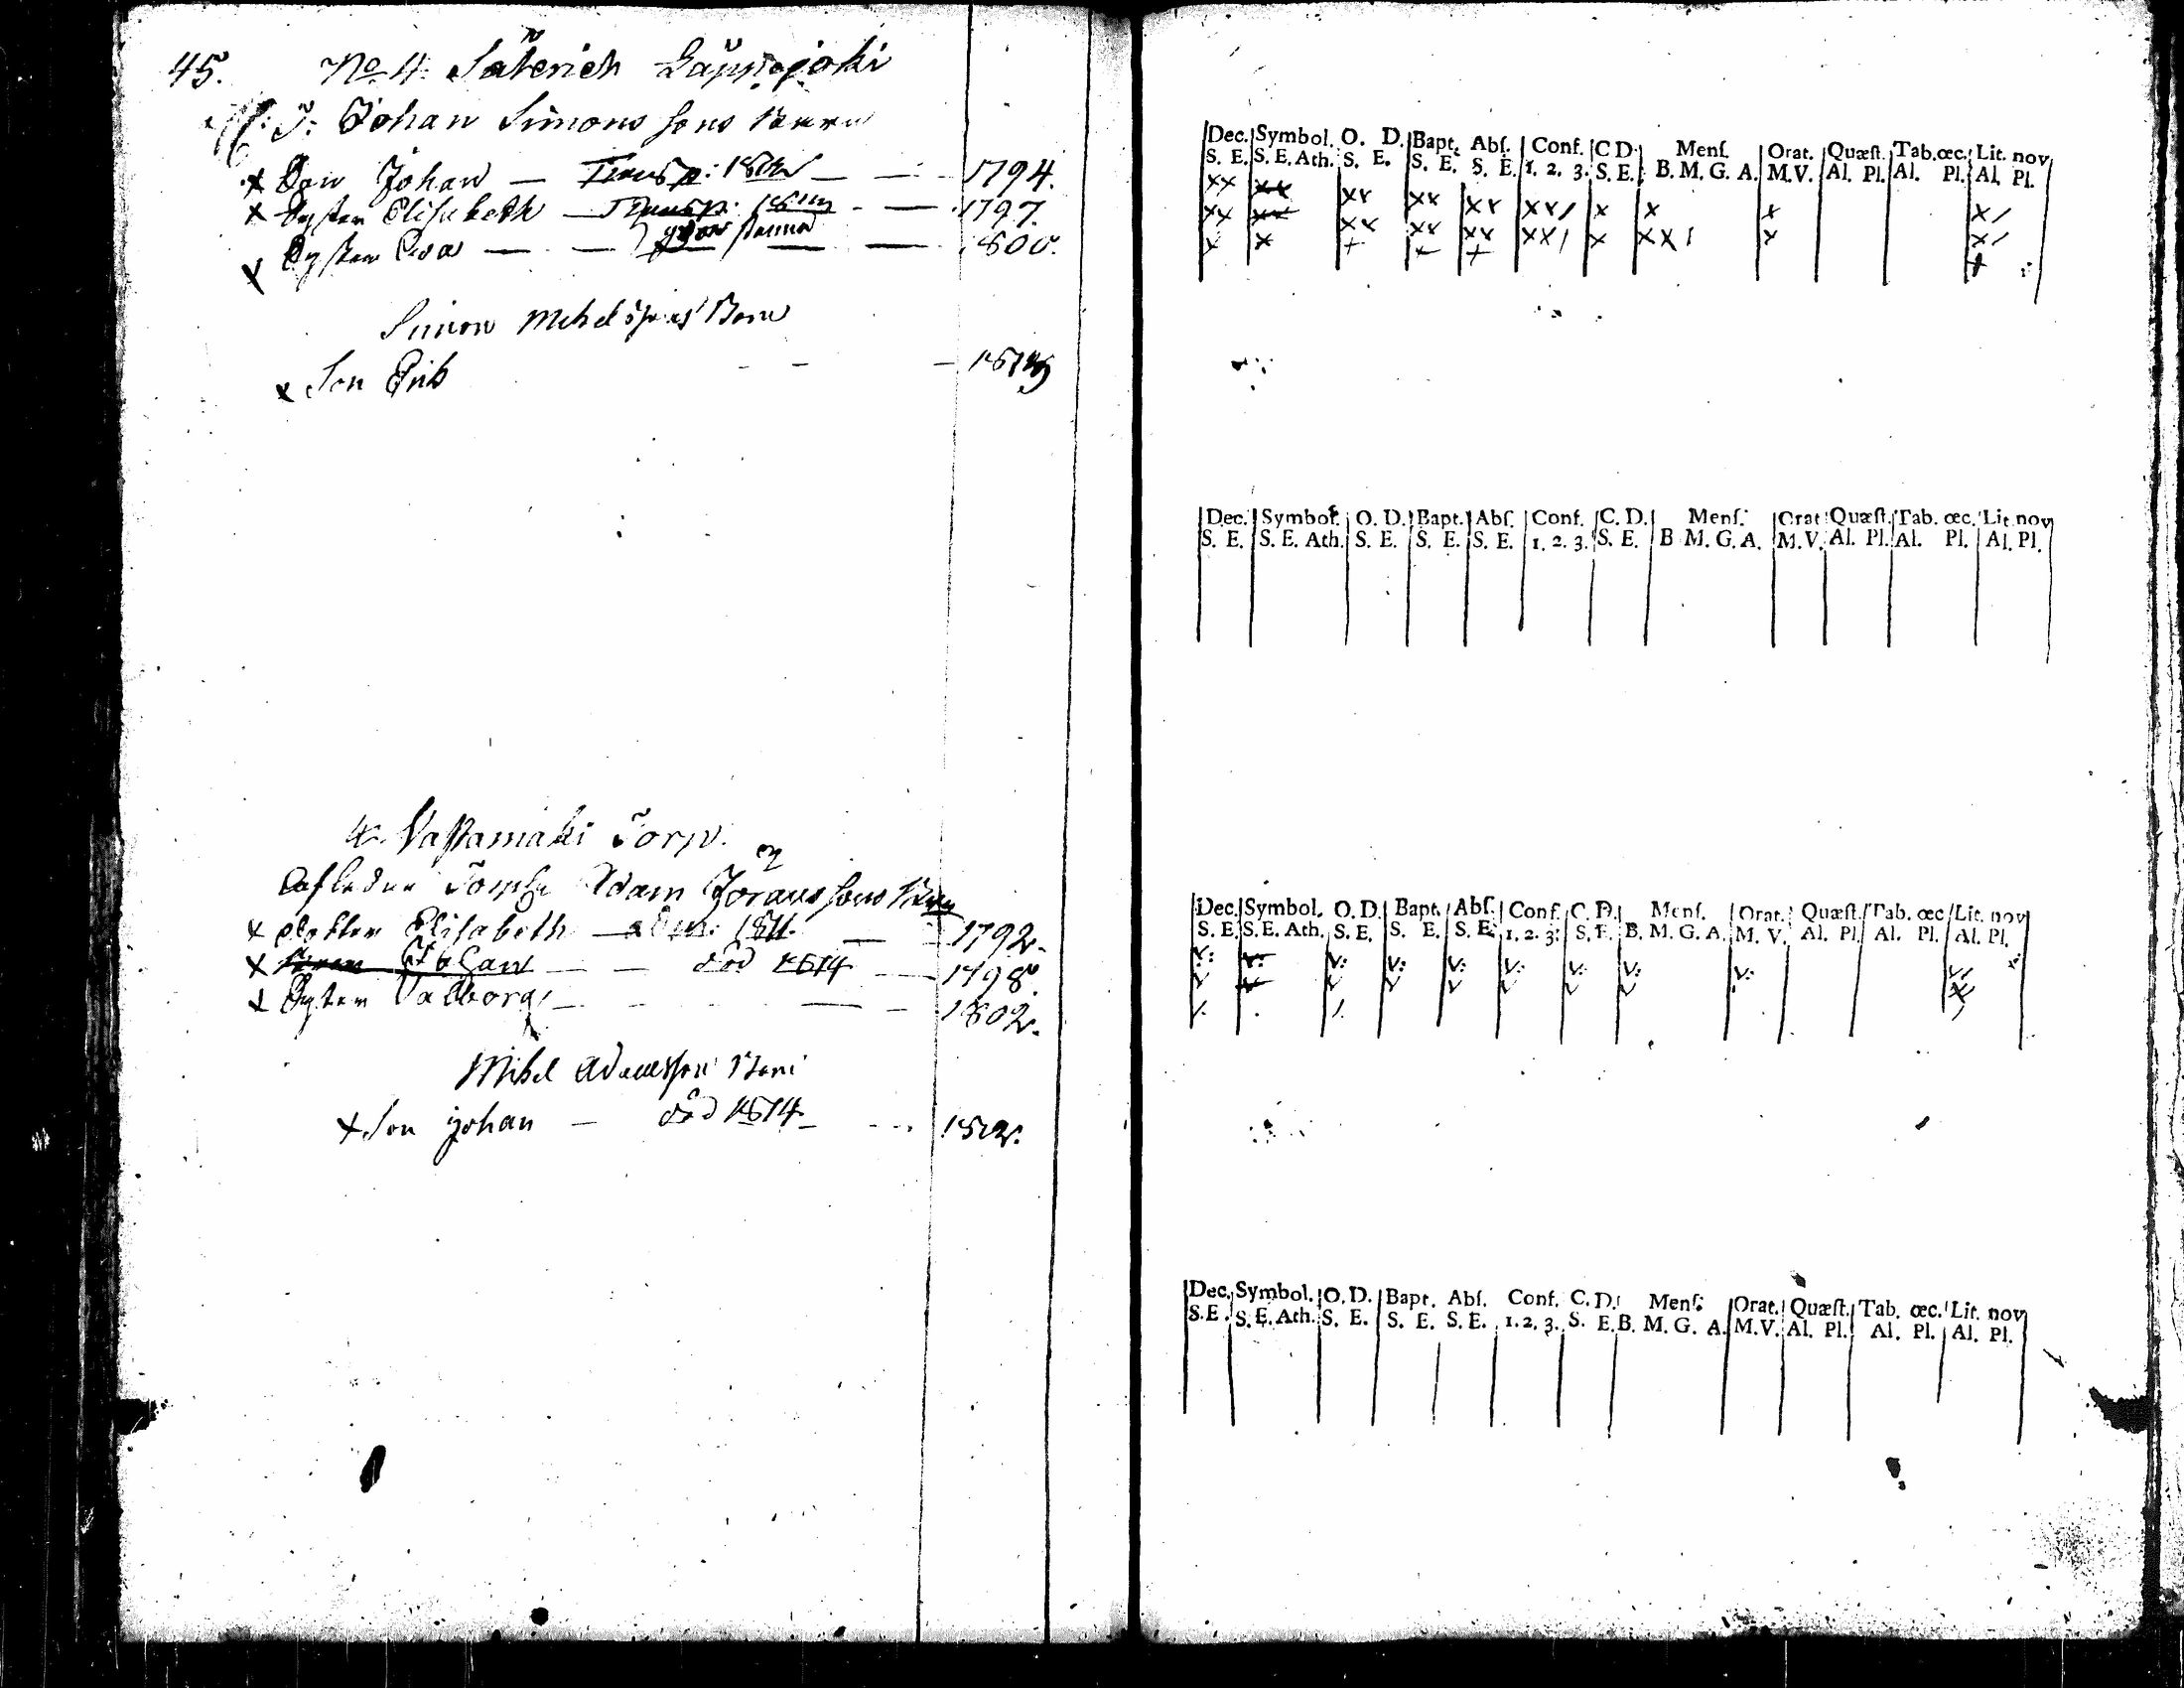 45. No 4. Säterich Läppojoki
J: Johan Simons sons Barn
x Son Johan — Transp: — 1794.
x Syster Elisabeth — Transp: — 1797.
x Syster Eva — — 1800.
Simon Barn
x Son Erik — — 1813
Dec. Symbol. O. D. Bapt. Abſ. Conf. C D. Menſ. Orat. Quæſt. Tab. œc. Lit. nov
S. E. S. E. Ath. S. E. S. E. S. E. 1. 2. 3. S. E. B. M. G. A. M. V. Al. Pl. Al. Pl. Al. Pl.
Dec. Symbol. O. D. Bapt. Abſ. Conf. C. D. Menſ. Orat. Quæſt. Tab. œc. Lit. nov
S. E. S. E. Ath. S. E. S. E. S. E. 1. 2. 3. S. E. B M. G. A. M. V. Al. Pl. Al. Pl. Al. Pl.
Vastamäki Torp.
Afledne Adam Jöranssons Barn
x dotter Elisabeth — 1811 — 1792.
x Johan — — död 1814 — 1798.
x Syster Valborg — — 1802.
Mikel Adamsson Barn
x Son Johan — död 1814 — 1812.
Dec. Symbol. O. D. Bapt. Abſ. Conf. C. D. Menſ. Orat. Quæſt. Tab. œc. Lit. nov
S. E. S. E. Ath. S. E. S. E. S. E. 1. 2. 3. S. E. B. M. G. A. M. V. Al. Pl. Al. Pl. Al. Pl.
Dec. Symbol. O. D. Bapt. Abſ. Conf. C. D. Menſ. Orat. Quæſt. Tab. œc. Lit. nov
S. E. S. E. Ath. S. E. S. E. S. E. 1. 2. 3. S. E. B. M. G. A. M. V. Al. Pl. Al. Pl. Al. Pl.